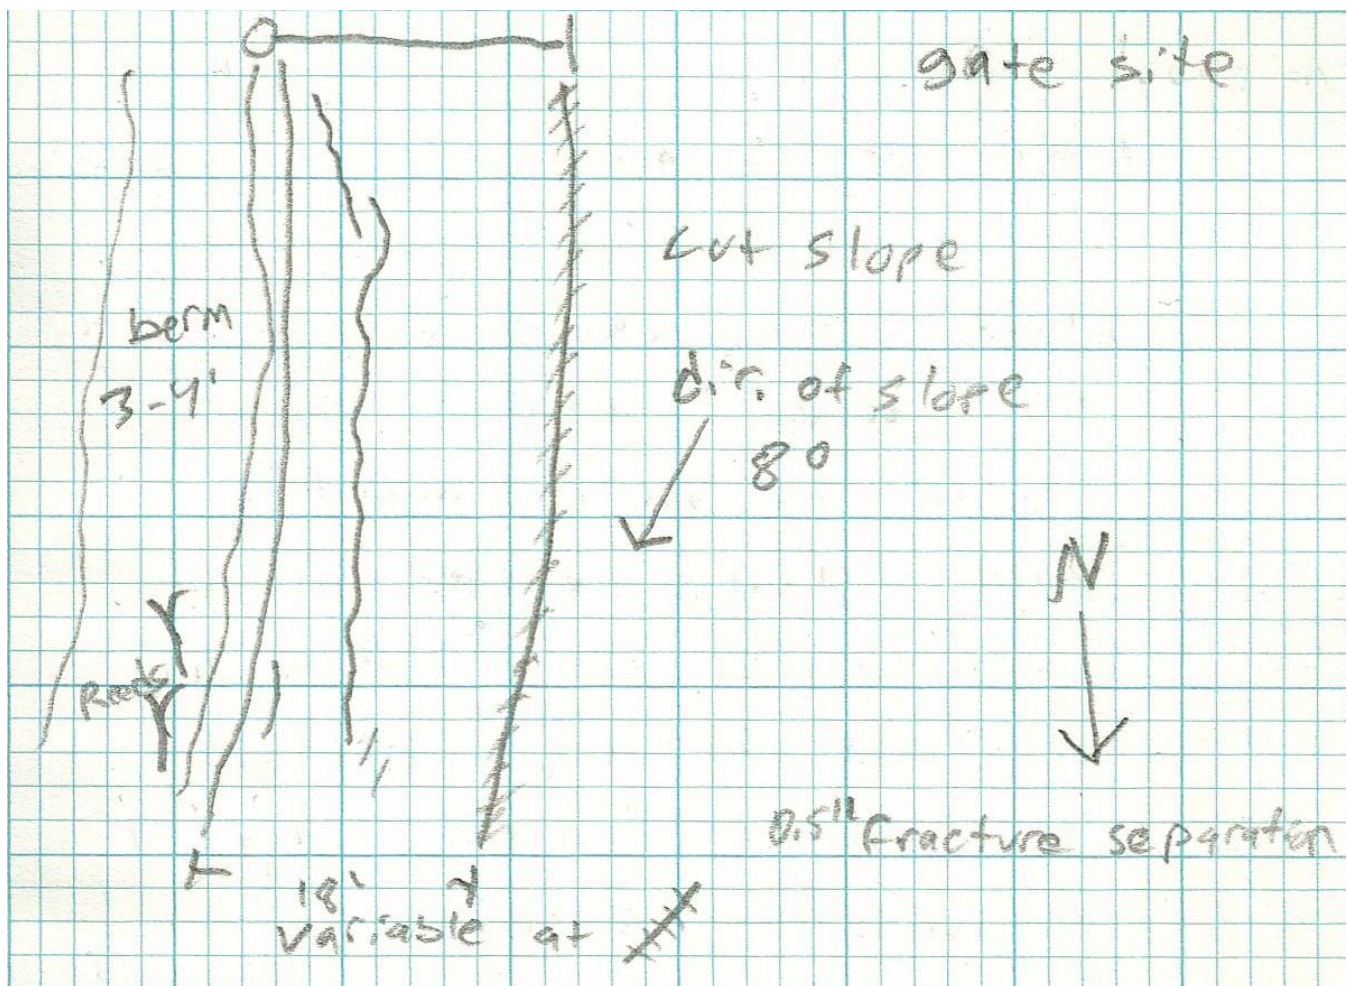 gate site
cut slope
berm
3-4'
dir. of slope
8°
N
Reeds
0.5" fracture separation
18'
variable at